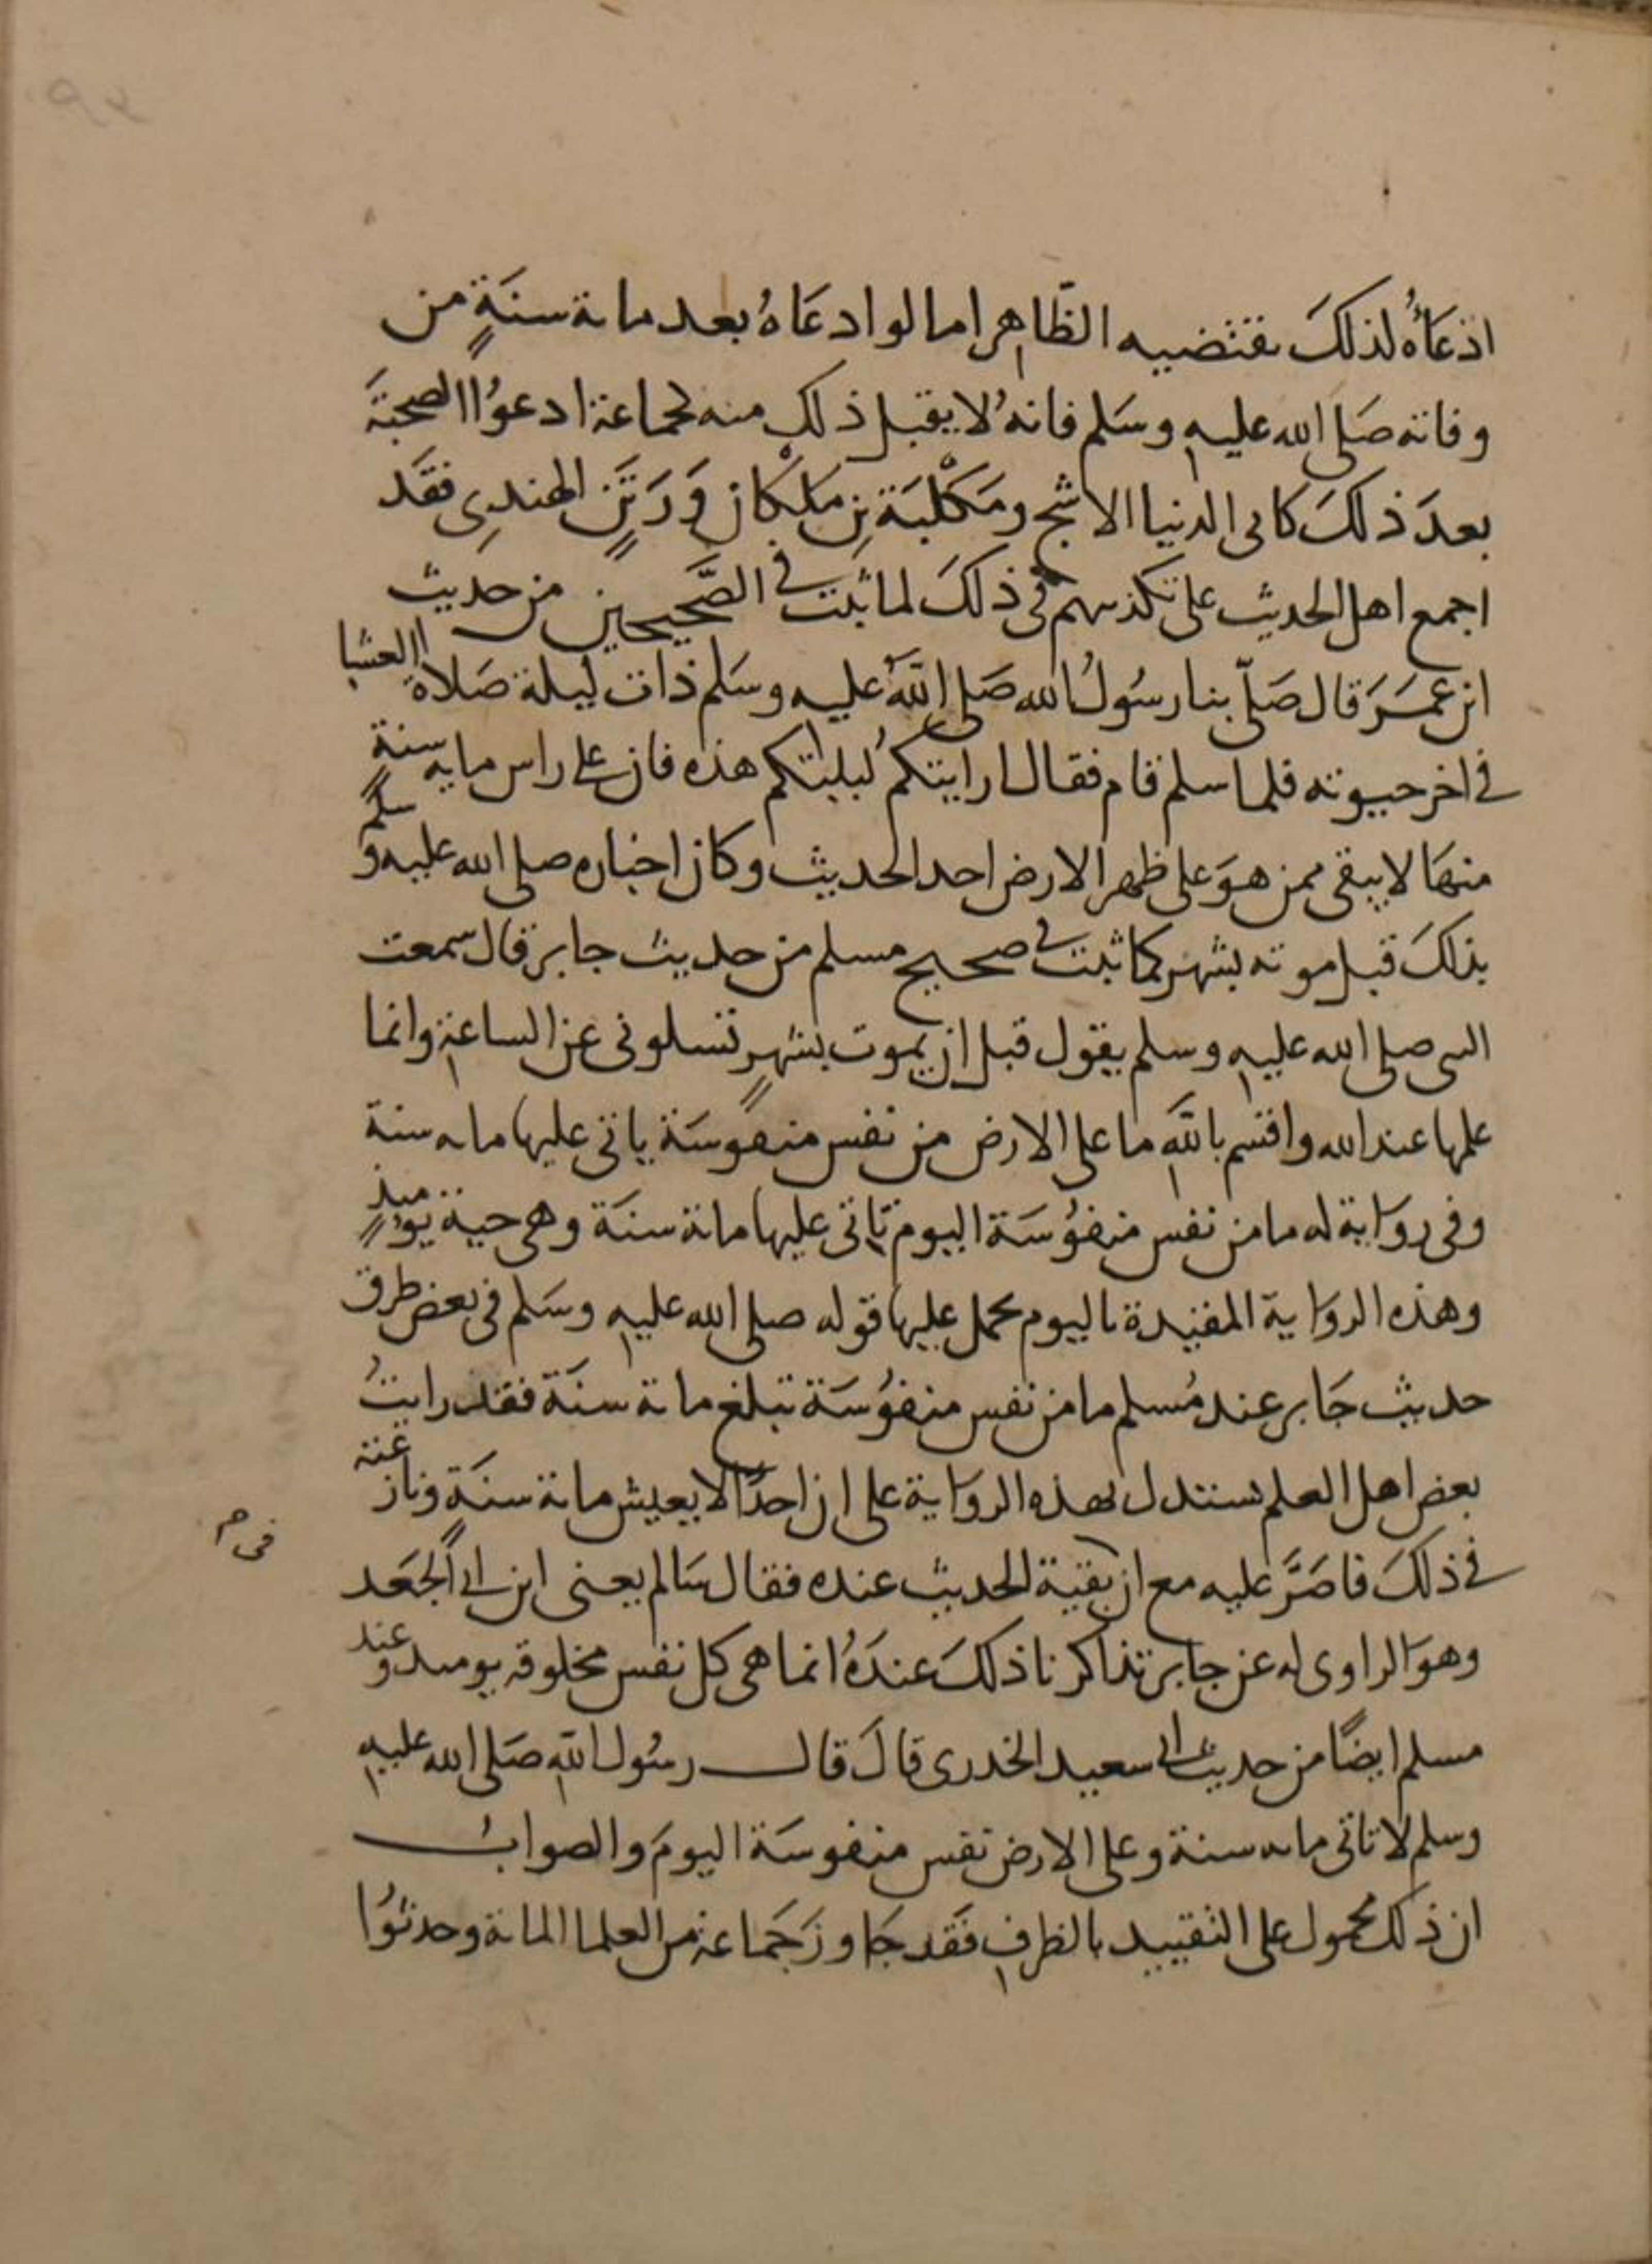 ادعَاؤُه لذلكَ يقتضيه الظّاهر اما لو ادعَاهُ بعد ماىة سنَةٍ من
وفاته صَلى الله عليه وسَلم فانهُ لا يقبل ذلك منه كجماعة ادعوُا الصحبَة
بعدَ ذلكَ كابى الدنيا الاشج ومَكْلبَة بنِ مَلْكان وَرَتَنٍ الهندِى فقَد
اجمع اهل الحديث على تكذيبهم فى ذلكَ لما ثبت في الصَّحيحين من حديث
ابن عمَرَ قال صَلّى بنا رسُولُ الله صَلى اللهُ عليه وسَلم ذات ليلة صَلاة العشا
في اخر حيوته فلما سلم قام فقال ارايتكم ليلتكم هذه فان على راس مايه سنةٍ
منهَا لا يبقى ممن هوَ على ظهر الارض احد الحديث وكان اخباره صلى الله عليه وسلم
بذلكَ قبل موته بشهر كما ثبت في صحيح مسلم من حديث جابر قال سمعت
النبى صلى الله عليه وسلم يقول قبل ان يموت بشهرٍ تسلونى عن الساعة وانما
علمها عند الله واقسم باللهِ ما على الارض من نفس منفوسَة ياتى عليها مايه سنة
وفى روَاية له ما من نفس منفوُسَة اليوم تاتى عليها مائة سنَة وهى حية يومئذٍ
وهذه الروَاية المقيدة باليوم يحمل عليها قوله صلى الله عليه وسَلم فى بعض طرق
حديث جَابر عند مُسلم ما من نفس منفوُسَة تبلغ مائة سنَة فقد رايتُ
بعض اهل العلم يستدل بهذه الروَاية على ان احدًا لا يعيش مائة سنَة ونازعته
في ذلكَ فاصَرَّ عليه مع ان بقية الحديث عنده فقال سَالم يعنى ابن ابي الجعَد
فى م
وهوَ الراوى له عن جابر تذاكرنا ذلكَ عندَهُ انما هى كل نفس مخلوقه يومئذ وعند
مسلم ايضًا من حديث ابي سعيد الخدرى قالَ قال رسُول اللهِ صَلى الله عليه
وسلم لا تاتى مايه سنة وعلى الارض نفس منفوسَة اليومَ والصوابُ
ان ذلك محمول على التقييد بالظرفِ فقَد جَاوزَ جَماعة من العلما المائة وحدثوُا